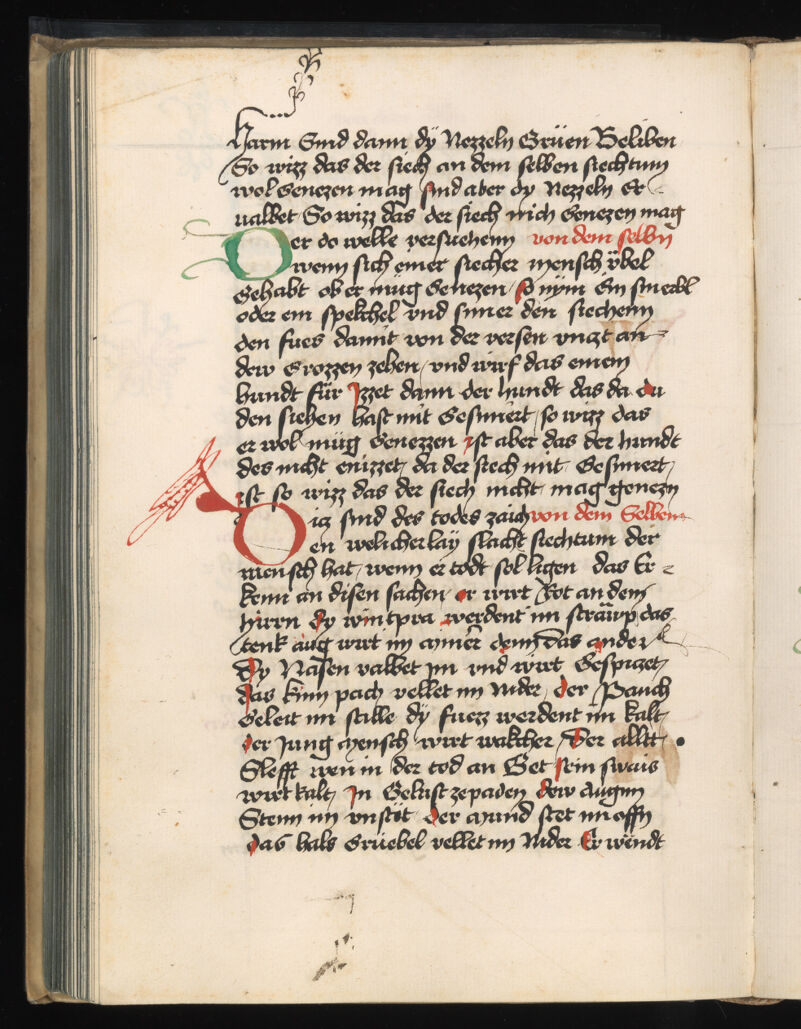 Harm Sind dann dÿ Nezzeln Grüen Beliben
So wizz das der siech an dem selben siechtum
wol Genezen mag sind aber dy Nezzeln Er-
ualbet So wizz das der siech nich Genezen mag
Der do welle versuehenn von dem selbn
wenn sich einer siecher mensch vbel
Gehabt ob er müg Genezen / So nym Ein smerbl
oder ein spekchel vnd smer den siechenn
den fues damit von der versen vnczt an
dew Grozzen zehen / vnd wirf das einem
hundt für Izzet dann der hundt das da du
den siehen hast mit Gesmiert / so wizz das
er wol müg Genezzen ist aber das der hundt
des nicht enizzet / da der siech mit Gesmert /
ist so wizz das der siech nicht mag genezn
Dicz sind des todes zaich von dem Selben
en welicherlay slacht siechtum der
mensch hat / wenn er todt sol ligen das Er-
kenn an disen sachen / er wirt Rot an dem
hirrn Dy wintpra werdent im strawp das
tenk aug wirt im mÿner denn das ander
Dy Nasen valbet Im vnd wirt Gespiczet /
das kinn pach vellet im Nider / der Pauch
Geleit im stille dÿ fuezz werdent im kalt /
der Jung Mensch wirt wakcher / Der alltt
Slefft wen in der tod an Get sein swais
wirt kalt / In Gelust zepaden dew Augnn
Stenn im vnstät der Mund stet im offn
das hals Grüebel vellet im Nider Er wendt